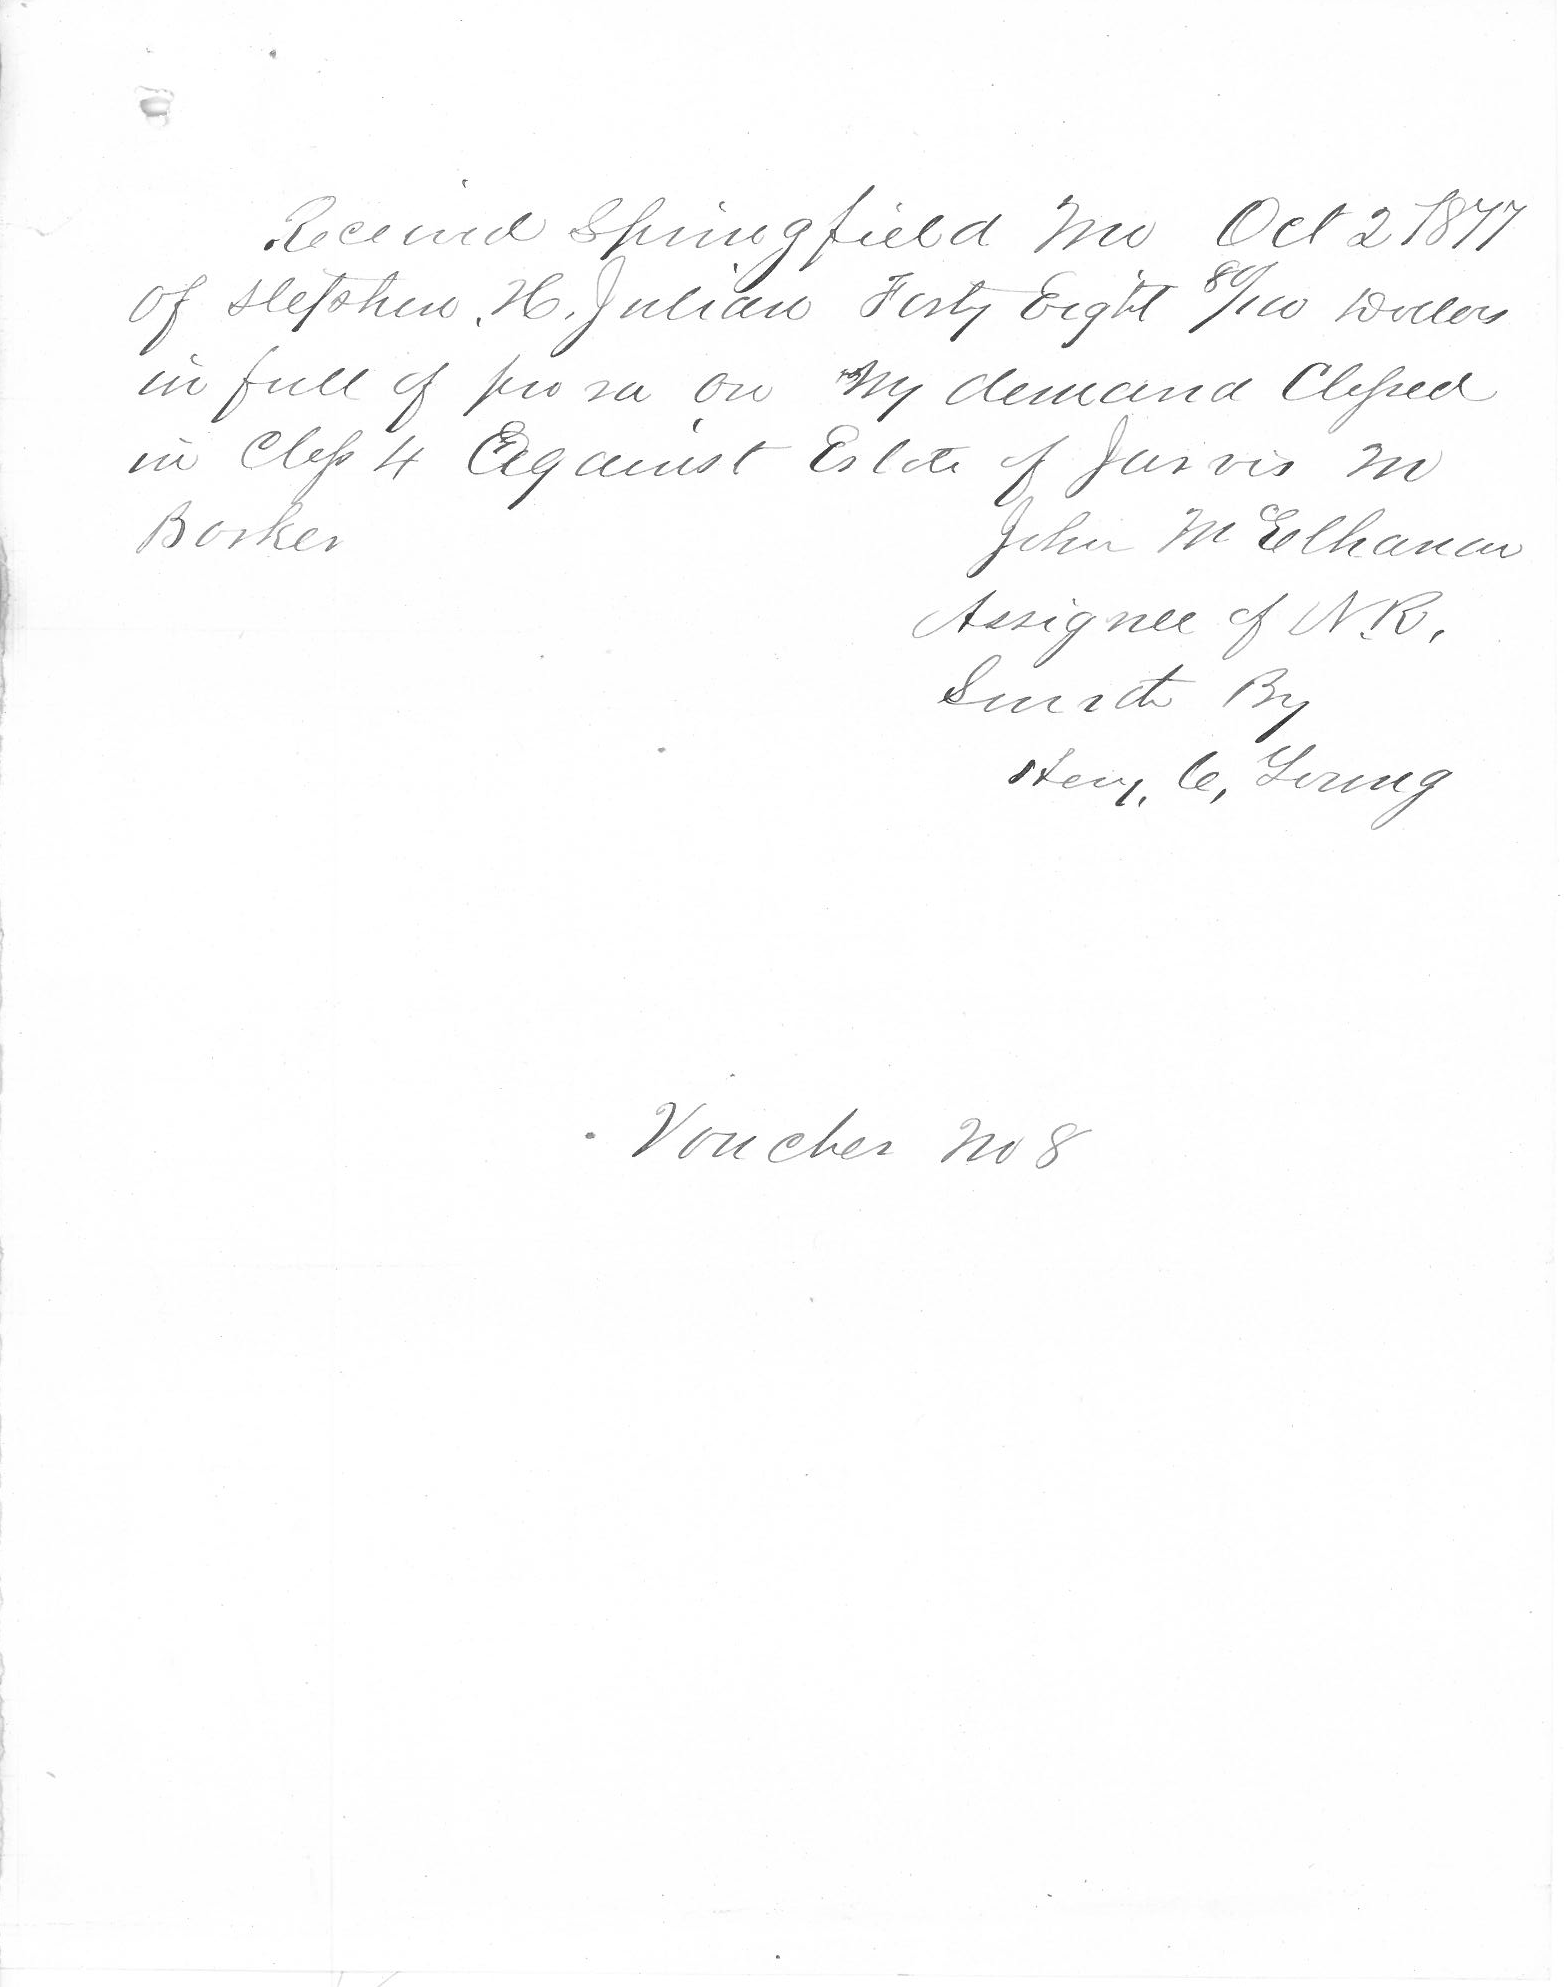 Received Springfield Mo Oct 2 1877
of Stephen H. Julian Forty Eight 80/100 Dollars
in full of pro ra on My demand Classed
in Class 4 Against Estate of Jarvis M
Barker
John McElhanon
Assignee of N.R.
Smith By
Henry. C, Young
Voucher No 8